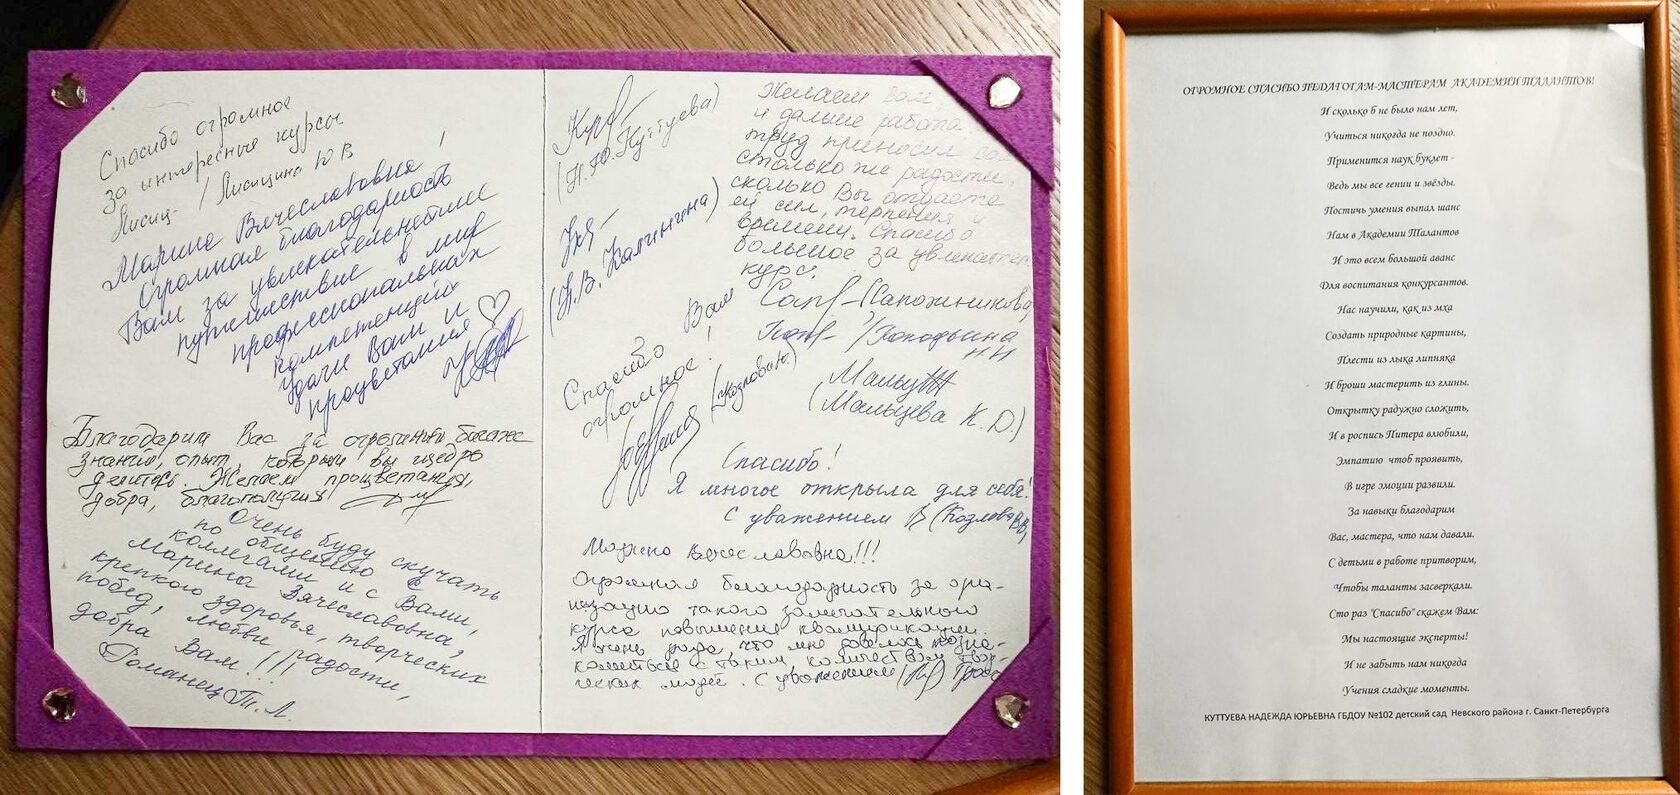 Спасибо огромное
за интересные курсы
Лисиц- / Лисицина Ю В
Марина Вячеславовна!
Огромная благодарность
Вам за увлекательнейшее
путешествие в мир
профессиональных
компетенций
удачи Вам и
процветания
Благодарим Вас за огромный багаж
знаний, опыт, которым вы щедро
делитесь. Желаем процветания,
добра, благополучия
Очень буду скучать
по общению с
коллегами и с Вами,
Марина Вячеславовна,
крепкого здоровья, творческих
побед, любви, радости,
добра Вам!!!
Романец Т.Л.
(Н.Ю. Куттуева)
(Н.В. Калинина)
Спасибо Вам
огромное!
Желаем Вам,
и дальше работа,
труд приносил
столько же радости,
сколько Вы отдаёте
ей сил, терпения и
времени. Спасибо
большое за
курс.
Сапожникова
Н Н
(Мальцева К. Ю.)
Спасибо!
Я многое открыла для себя!
с уважением (Козлова ВВ)
Марина Вячеславовна!!!
Огромная благодарность за орга-
низацию такого замечательного
курса повышения квалификации.
Я очень рада, что мне довелось позна-
комиться с таким количеством твор-
ческих людей. С уважением
ОГРОМНОЕ СПАСИБО ПЕДАГОГАМ-МАСТЕРАМ АКАДЕМИИ ТАЛАНТОВ!
И сколько б не было нам лет,
Учиться никогда не поздно.
Применится наук буклет -
Ведь мы все гении и звёзды.
Постичь умения выпал шанс
Нам в Академии Талантов
И это всем большой аванс
Для воспитания конкурсантов.
Нас научили, как из мха
Создать природные картины,
Плести из лыка липняка
И броши мастерить из глины.
Открытку радужно сложить,
И в роспись Питера влюбили,
Эмпатию чтоб проявить,
В игре эмоции развили.
За навыки благодарим
Вас, мастера, что нам давали.
С детьми в работе притворим,
Чтобы таланты засверкали.
Сто раз "Спасибо" скажем Вам:
Мы настоящие эксперты!
И не забыть нам никогда
Учения сладкие моменты.
КУТТУЕВА НАДЕЖДА ЮРЬЕВНА ГБДОУ №102 детский сад Невского района г. Санкт-Петербурга